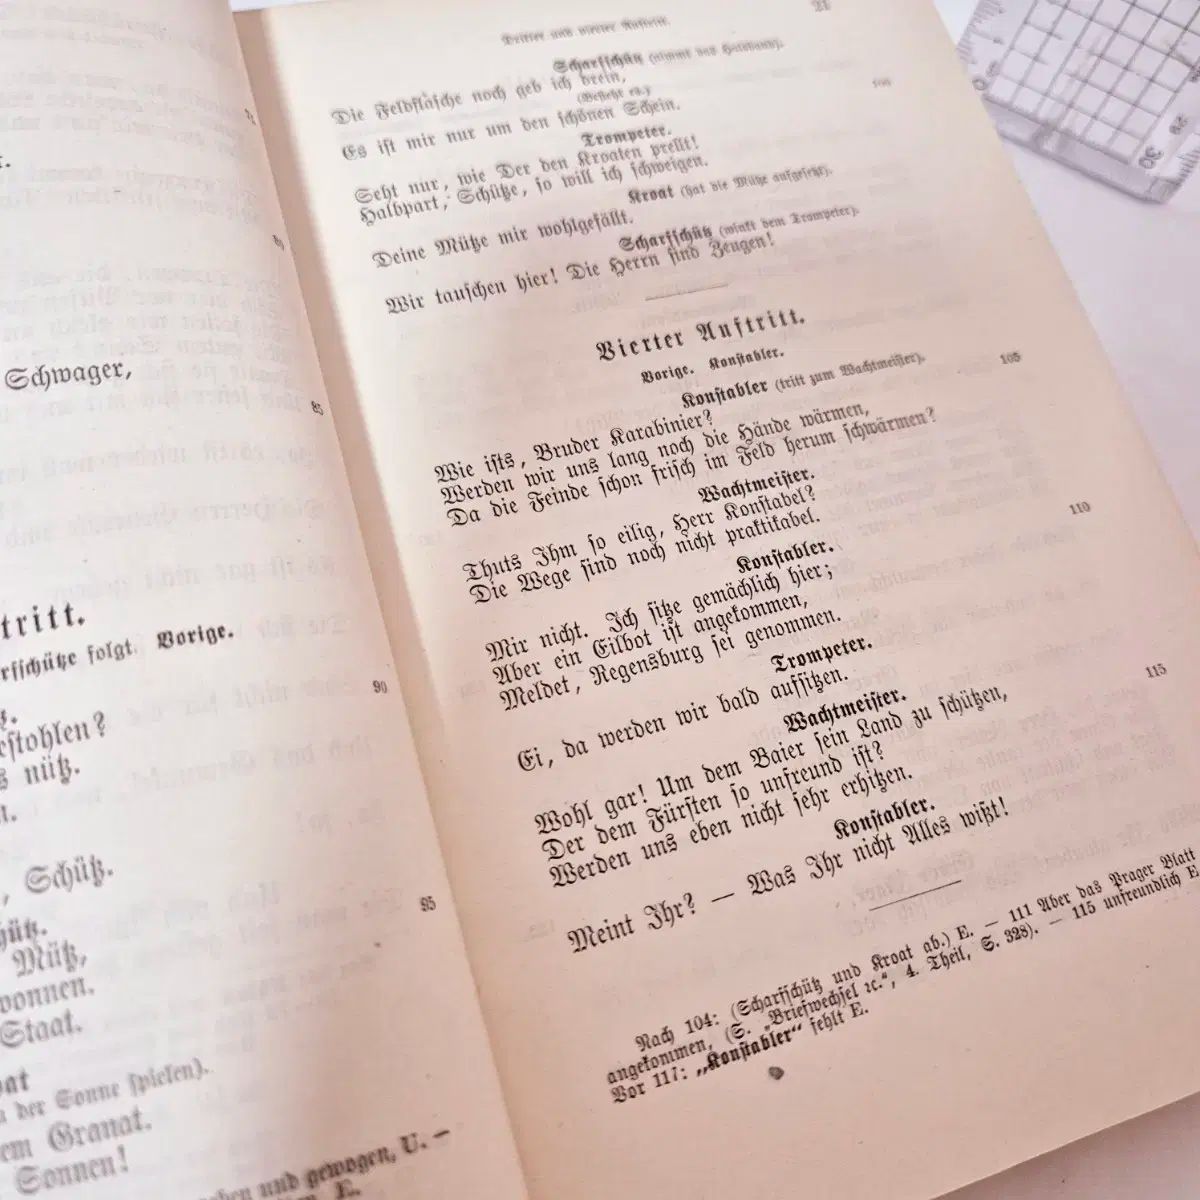 Schwager,
85
tritt.
rfschütze folgt. Vorige.
90
estohlen?
s nütz.
, Schütz.
95
hütz.
Mütz,
wonnen.
Staat.
oat
n der Sonne spielen).
em Granat.
Sonnen!
und gewogen, U. —
E.
Dritter und vierter Auftritt.
21
Scharfschütz (nimmt das Halsband).
Die Feldflasche noch geb ich drein,
(Besieht es.)
Es ist mir nur um den schönen Schein.
100
Trompeter.
Seht nur, wie Der den Kroaten prellt!
Halbpart, Schütze, so will ich schweigen.
Kroat (hat die Mütze aufgesetzt).
Deine Mütze mir wohlgefällt.
Scharfschütz (winkt dem Trompeter).
Wir tauschen hier! Die Herrn sind Zeugen!
Vierter Auftritt.
Vorige. Konstabler.
Konstabler (tritt zum Wachtmeister).
105
Wie ists, Bruder Karabinier?
Werden wir uns lang noch die Hände wärmen,
Da die Feinde schon frisch im Feld herum schwärmen?
Wachtmeister.
Thuts Ihm so eilig, Herr Konstabel?
Die Wege sind noch nicht praktikabel.
Konstabler.
110
Mir nicht. Ich sitze gemächlich hier;
Aber ein Eilbot ist angekommen,
Meldet, Regensburg sei genommen.
Trompeter.
Ei, da werden wir bald aufsitzen.
Wachtmeister.
115
Wohl gar! Um dem Baier sein Land zu schützen,
Der dem Fürsten so unfreund ist?
Werden uns eben nicht sehr erhitzen.
Konstabler.
Meint Ihr? — Was Ihr nicht Alles wißt!
Nach 104: (Scharfschütz und Kroat ab.) E. — 111 Aber das Prager Blatt
angekommen, (S. „Briefwechsel ꝛc.“, 4. Theil, S. 328). — 115 unfreundlich E
Vor 117: „Konstabler“ fehlt E.